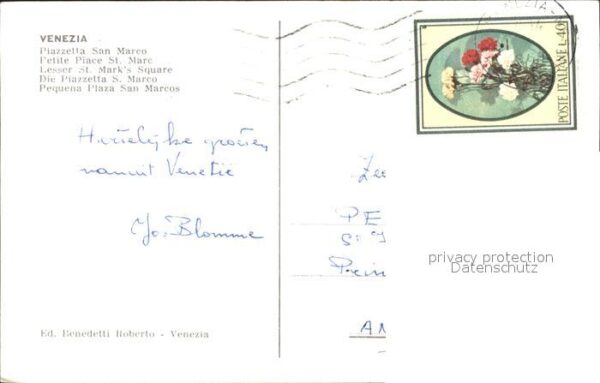 VENEZIA
Piazzetta San Marco
Petite Place St. Marc
Lesser St. Mark's Square
Die Piazzetta S. Marco
Pequena Plaza San Marcos
POSTE ITALIANE L.40
Hartelijke groeten
vanuit Venetië
Jo. Blomme
PE
privacy protection
Datenschutz
Ed. Benedetti Roberto - Venezia